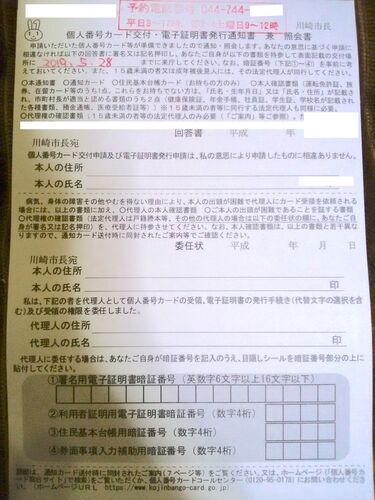 予約電話番号 044-744-
平日8:30~17時、第2・4土曜日9~12時
川崎市長
個人番号カード交付・電子証明書発行通知書 兼 照会書
申請いただいた個人番号カード等が準備できましたので通知・照会します。あなたの意思に基づく申請に
相違なければ以下の回答書に署名又は記名押印し、あなたご自身が以下の書類を持参して表面記載の交付場
所に 2019.5.28 までに来庁してください。なお、来庁時間を短縮するため、暗証番号(下記①~④)を事前に考
えておいてください。また、15歳未満の者又は成年被後見人には、その法定代理人が同行してください。
〇本通知書 〇通知カード 〇住民基本台帳カード(お持ちの方のみ) 〇本人確認書類
回答書 平成 年
川崎市長宛
個人番号カード交付申請及び電子証明書発行申請は、私の意思により申請したものに相違ありません。
本人の住所
本人の氏名
病気、身体の障害その他やむを得ない理由により、本人の出頭が困難で代理人にカード受領を依頼される
場合には、以上の書類に加え、〇代理人の本人確認書類 〇ご本人の出頭が困難であることを証する書類
〇代理権の確認書類(法定代理人は戸籍謄本等、その他の代理人の場合は以下の委任状の欄に、あなたご自
身が署名又は記名押印)を、代理人に持参させてください。なお、本人確認書類は、以上の書類と若干異な
りますので、通知カード送付時に同封されたご案内等でご確認ください。
委任状 平成 年 月 日
川崎市長宛
本人の住所
本人の氏名 印
私は、下記の者を代理人として個人番号カードの受領、電子証明書の発行手続き(代替文字の選択を含
む)及び受領の権限を委任しました。
代理人の住所
代理人の氏名 印
代理人に委任する場合は、あなたご自身が暗証番号を記入のうえ、目隠しシールを暗証番号部分の上に
貼付してください。
①署名用電子証明書暗証番号(英数字6文字以上16文字以下)
②利用者証明用電子証明書暗証番号(数字4桁)
③住民基本台帳用暗証番号(数字4桁)
④券面事項入力補助用暗証番号(数字4桁)
詳細は、通知カード送付時に同封されたご案内(7ページ等)をご覧ください。又は、ホームページ「個人番号カ
ード総合サイト」で検索をご覧いただくか、個人番号カードコールセンター(0120-95-0178)にお問い合わせください。
(ホームページURL https://www.kojinbango-card.go.jp)